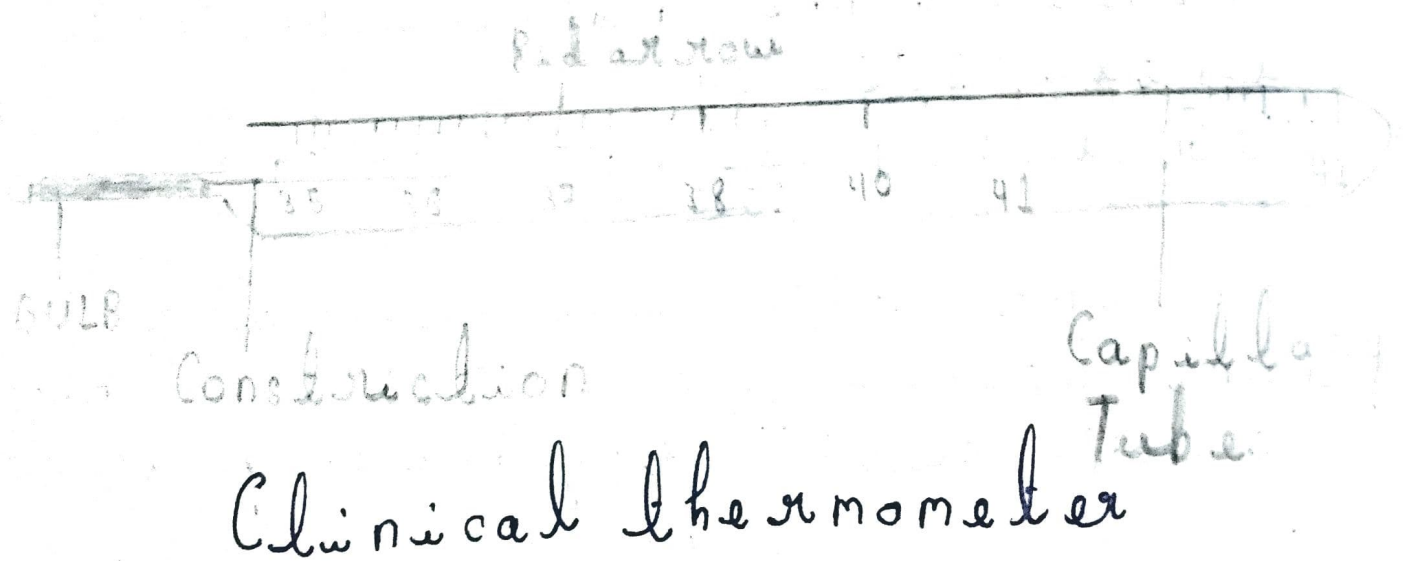 Red arrow
35 38 40 41
BULB
Constriction
Capilla
Tube
Clinical thermometer